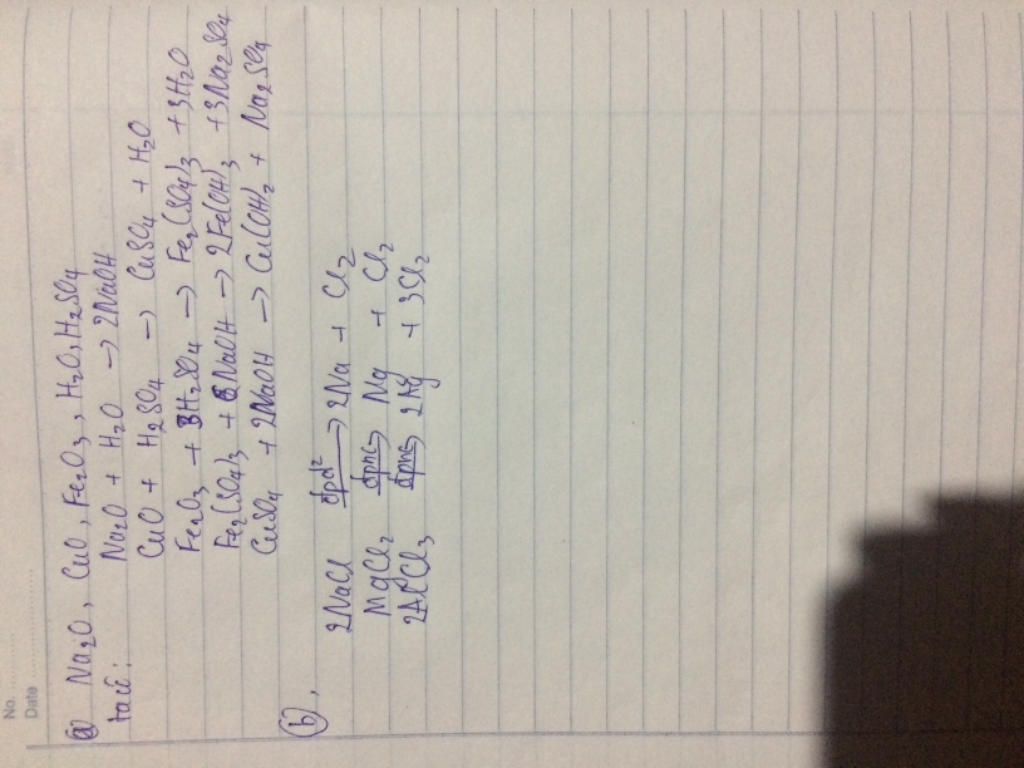 No.
Date
(a) Na2O, CuO, Fe2O3, H2O, H2SO4
Na2O + H2O → 2NaOH
CuO + H2SO4 → CuSO4 + H2O
Fe2O3 + 3H2SO4 → Fe2(SO4)3 + 3H2O
Fe2(SO4)3 + 6NaOH → 2Fe(OH)3 + 3Na2SO4
CuSO4 + 2NaOH → Cu(OH)2 + Na2SO4
(b),
2NaCl → 2Na + Cl2
MgCl2 đpnc Mg + Cl2
2AlCl3 đpnc + 3Cl2